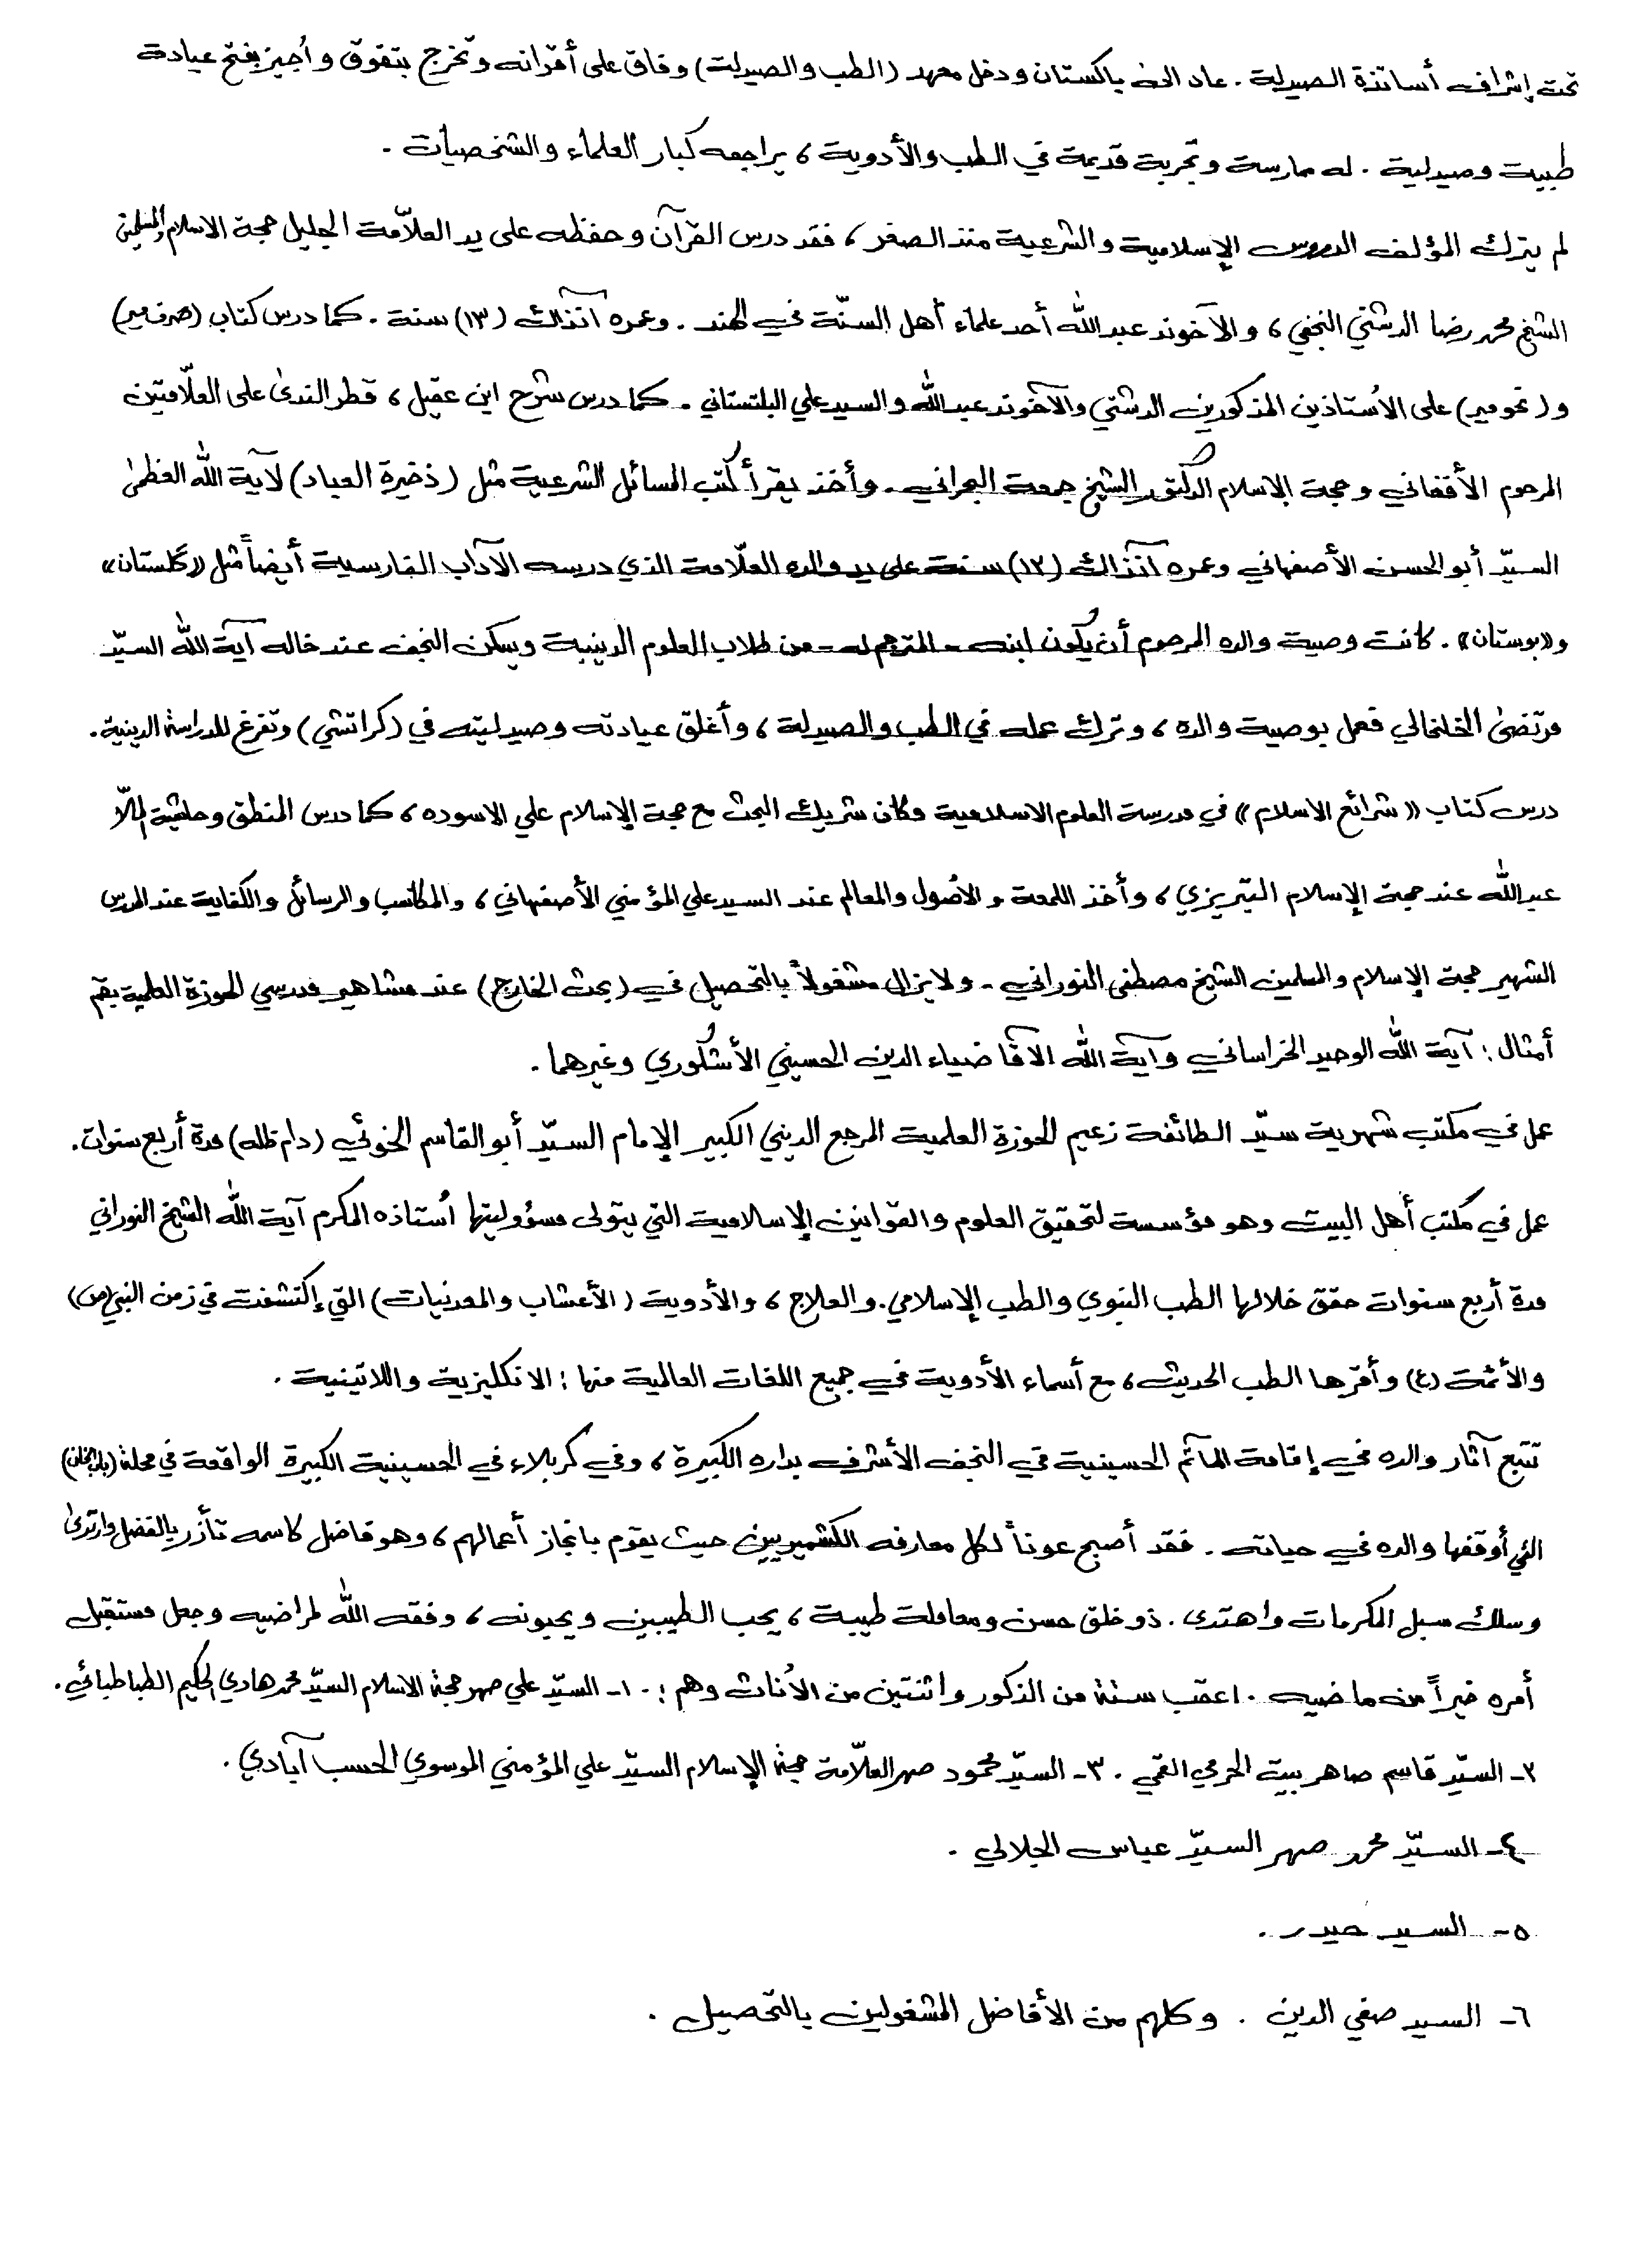 تحت إشراف أساتذة الصيدلة . عاد الى پاكستان ودخل معهد (الطب والصيدلة) وفاق على أقرانه وتخرج بتفوق وأُجيز بفتح عيادة
طبية وصيدلية . له ممارسة وتجربة قديمة في الطب والأدوية ، يراجعه كبار العلماء والشخصيات .
لم يترك المؤلف الدروس الإسلامية والشرعية منذ الصغر ، فقد درس القرآن وحفظه على يد العلاّمة الجليل حجة الاسلام والمسلمين
الشيخ محمد رضا الدشتي النجفي ، والآخوند عبد الله أحد علماء أهل السنّة في الهند . وعمره آنذاك (١٣) سنة . كما درس كتاب (صرف مير)
و (نحو مير) على الاُستاذين المذكورين الدشتي والآخوند عبد الله والسيد علي البلتستاني . كما درس شرح ابن عقيل ، قطر الندىٰ على العلّامتين
المرحوم الأفغاني وحجة الإسلام الدكتور الشيخ جمعة البحراني . وأخذ يقرأ كتب المسائل الشرعية مثل (ذخيرة العباد) لآية الله العظمىٰ
السيّد أبو الحسن الأصفهاني وعمره آنذاك (١٢) سنة على يد والده العلّامة الذي درسه الآداب الفارسية أيضاً مثل «گلستان»
و«بوستان» . كانت وصية والده المرحوم أن يكون ابنه - المترجم له - من طلاب العلوم الدينية ويسكن النجف عند خاله آية الله السيّد
مرتضىٰ الخلخالي فعمل بوصية والده ، وترك عمله في الطب والصيدلة ، وأغلق عيادته وصيدليته في (كراتشي) وتفرغ للدراسة الدينية .
درس كتاب «شرائع الاسلام» في مدرسة العلوم الاسلامية وكان شريك البحث مع حجة الإسلام علي الاسوده ، كما درس المنطق وحاشية الملّا
عبد الله عند حجة الإسلام التبريزي ، وأخذ اللمعة والاُصول والمعالم عند السيد علي المؤمني الأصفهاني ، والمكاسب والرسائل والكفاية عند المدرس
الشهير حجة الإسلام والمسلمين الشيخ مصطفى النوراني . ولا يزال مشغولاً بالتحصيل في (بحث الخارج) عند مشاهير مدرسي الحوزة العلمية بقم
أمثال : آية الله الوحيد الخراساني وآية الله الآقا ضياء الدين الحسيني الأشكُوري وغيرهما .
عمل في مكتب شهرية سيّد الطائفة زعيم الحوزة العلمية المرجع الديني الكبير الإمام السيّد أبو القاسم الخوئي (دام ظله) مدة أربع سنوات .
عمل في مكتب أهل البيت وهو مؤسسة لتحقيق العلوم والقوانين الإسلامية التي يتولى مسؤوليتها اُستاذه المكرم آية الله الشيخ النوراني
مدة أربع سنوات حقق خلالها الطب النبوي والطب الإسلامي . والعلاج ، والأدوية (الأعشاب والمعدنيات) التي إكتشفت في زمن النبي (ص)
والأئمة (ع) وأقرّها الطب الحديث ، مع أسماء الأدوية في جميع اللغات العالمية منها : الانكليزية واللاتينية .
تتبع آثار والده في إقامة المآتم الحسينية في النجف الأشرف بداره الكبيرة ، وفي كربلاء في الحسينية الكبيرة الواقعة في محلة
التي أوقفها والده في حياته . فقد أصبح عوناً لكل معارفه الكشميريين حيث يقوم بانجاز أعمالهم ، وهو فاضل كاسمه تأزر بالفضل وارتدىٰ
وسلك سبل المكرمات واهتدى . ذو خلق حسن ومعاملة طيبة ، يحب الطيبين ويحبونه ، وفقه الله لمراضيه وجعل مستقبل
أمره خيراً من ماضيه . اعقب ستة من الذكور واثنتين من الاُناث وهم : ١- السيّد علي صهر حجة الاسلام السيّد محمد هادي الحكيم الطباطبائي .
٢- السيّد قاسم صاهر بيت الحرمي القمي . ٣- السيّد محمود صهر العلاّمة حجة الإسلام السيّد علي المؤمني الموسوي الحسب آبادي .
٤- السيّد محمد صهر السيّد عباس الجلالي .
٥- السيد حيدر .
٦- السيد صفي الدين . وكلهم من الأفاضل المشغولين بالتحصيل .